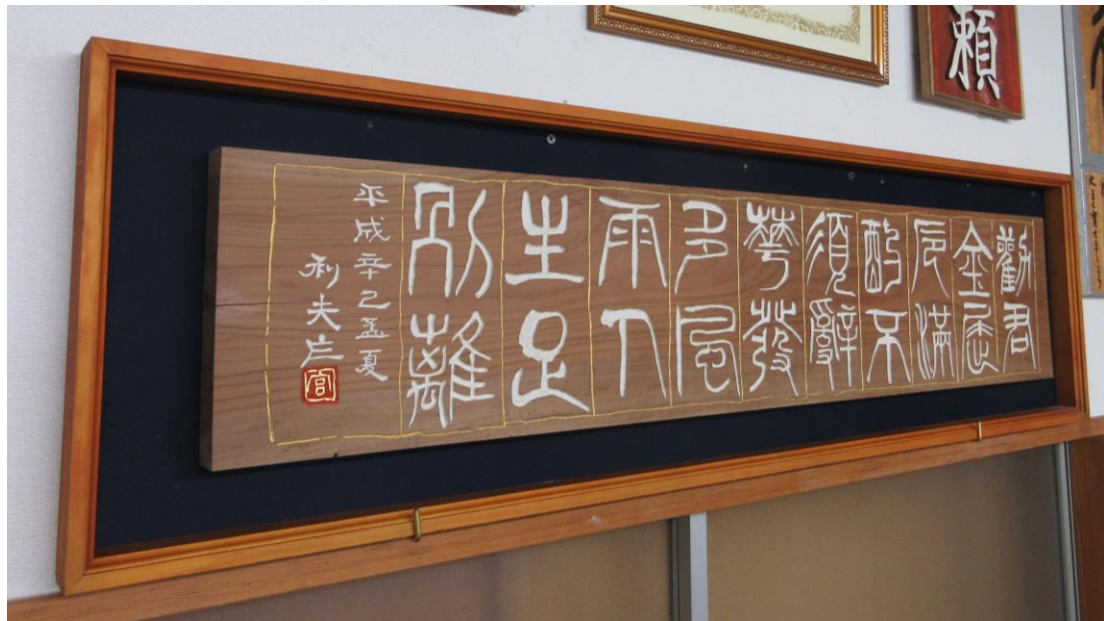 勸君
金屈
卮滿
酌不
須辭
華發
多風
雨人
生足
別離
平成辛巳孟夏
利夫
宮
頼